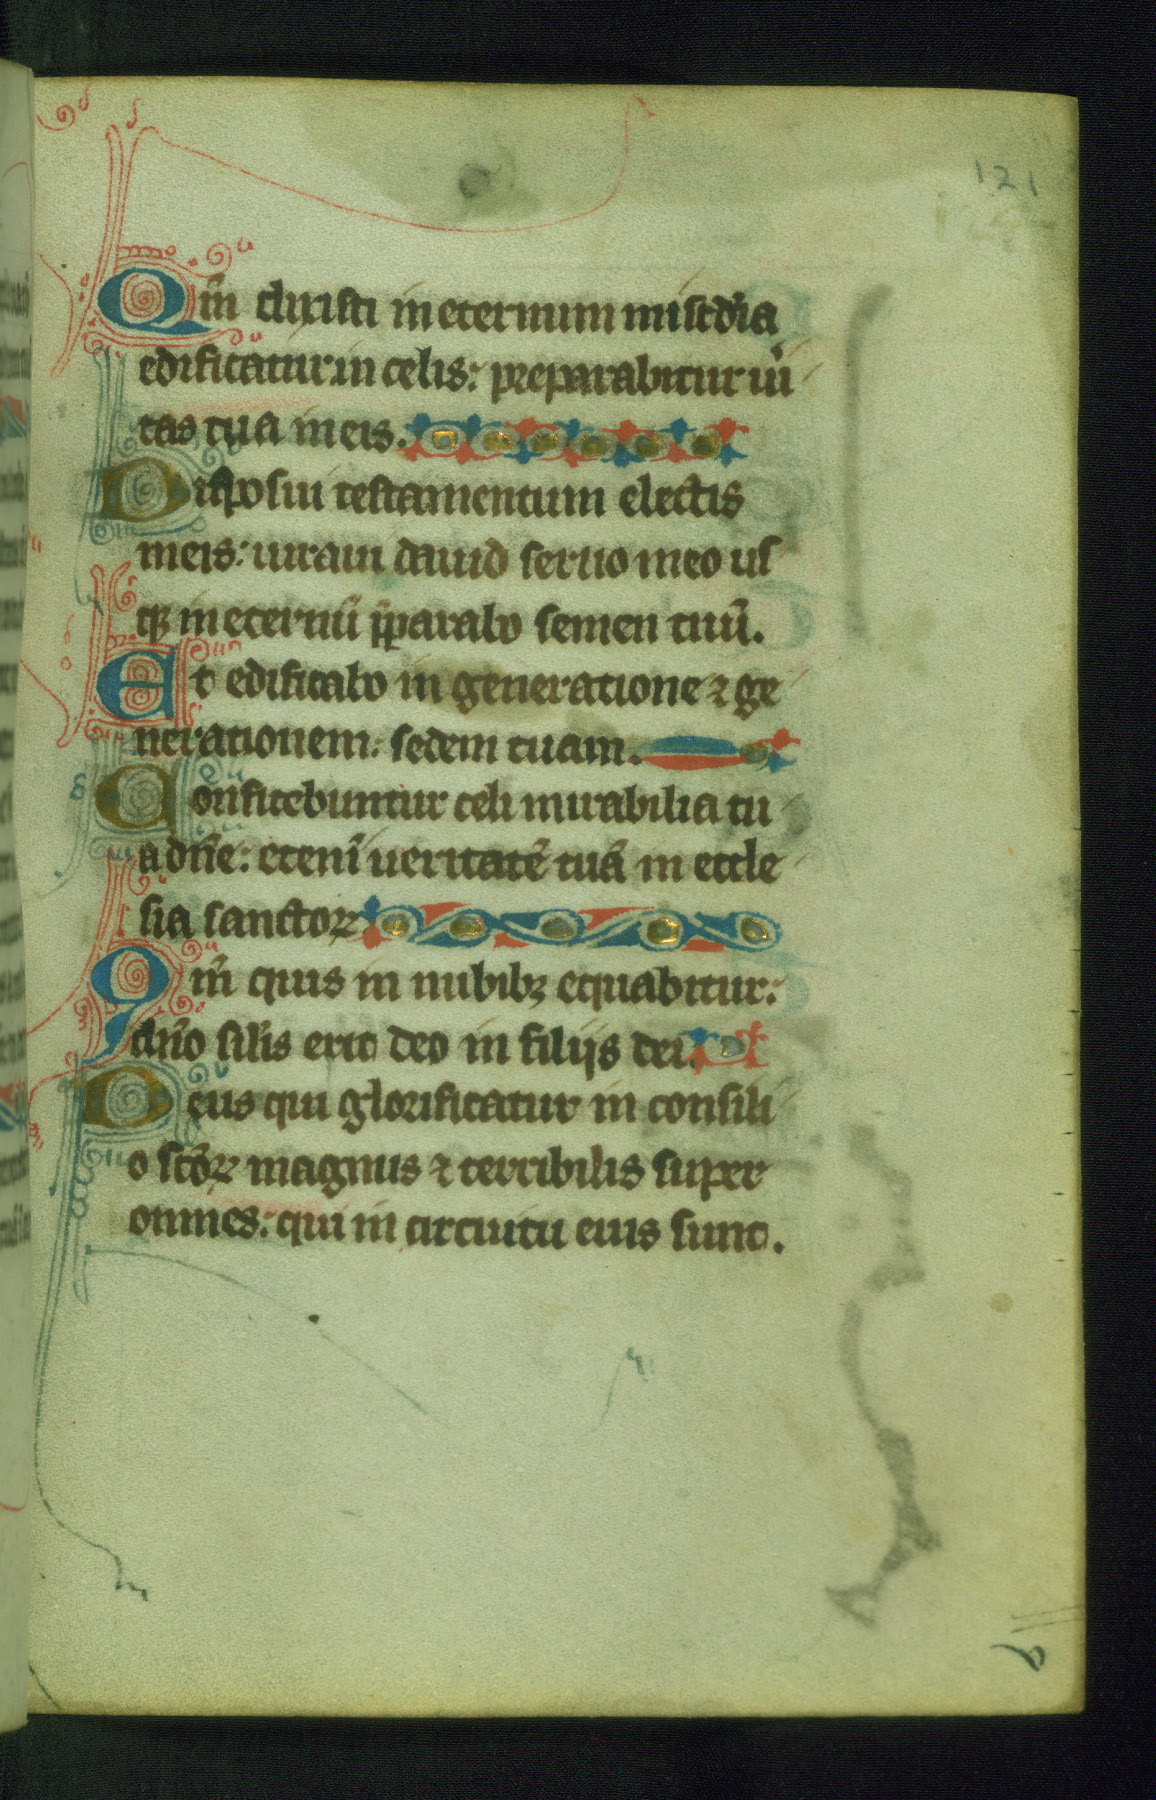 121
Qm̄ dixisti in eternum mis̄cd̄ia
edificatur in celis: preparabitur ui
tas tua in eis.
Disposui testamentum electis
meis: iuraui dauid seruo meo us
qꝫ in eternū p̄parabo semen tuū.
Et edificabo in generatione ⁊ ge
nerationem. sedem tuam.
Confitebuntur celi mirabilia tu
a dn̄e: etenī ueritatē tuā in eccle
sia sanctoꝝ
Qm̄ quis in nubibꝫ equabitur:
dn̄o silis erit deo in filijs dei.
Deus qui glorificatur in consili
o sc̄oꝝ magnus ⁊ terribilis super
omnes: qui in circuitu eius sunt.